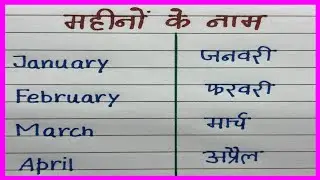 महीनों के नाम
January जनवरी
February फरवरी
March मार्च
April अप्रैल